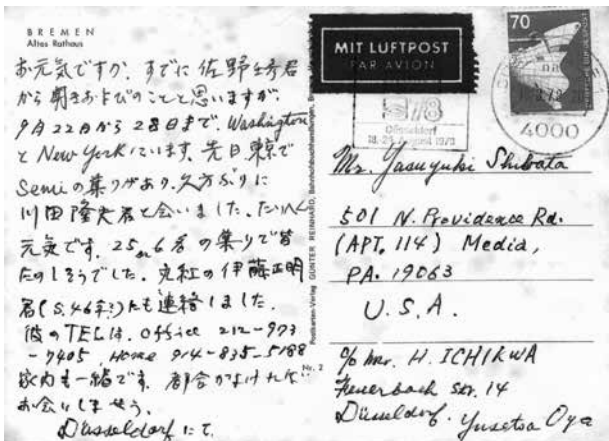 BREMEN
Altes Rathaus
お元気ですか. すでに佐野
から聞きおよびのことと思いますが.
9月22日から28日まで. Washington
と New York にいます. 先日東京で
Semiの集りがあり. 久方ぶりに
川田隆夫君と会いました. たいへん
元気です. 25, 6名の集りで皆
たのしそうでした. 丸紅の伊藤正明
君(S.46卒)にも連絡しました.
彼のTELは. Office 212-973
-7405, Home 914-835-5188
家内も一緒です. 都合がよければ
お会いしませう.
Düsseldorf にて.
Postkarten-Verlag GÜNTER REINHARD, Bahnhofsbuchhandlungen,
Nr. 2
MIT LUFTPOST
PAR AVION
70
DEUTSCHE BUNDESPOST
Düsseldorf
4000
Mr. Yasuyuki Shibata
501 N. Providence Rd.
(APT. 114) Media,
PA. 19063
U. S. A.
c/o Mr. H. ICHIKWA
Feuerbach Str. 14
Düsseldorf. Yusetsa Oya